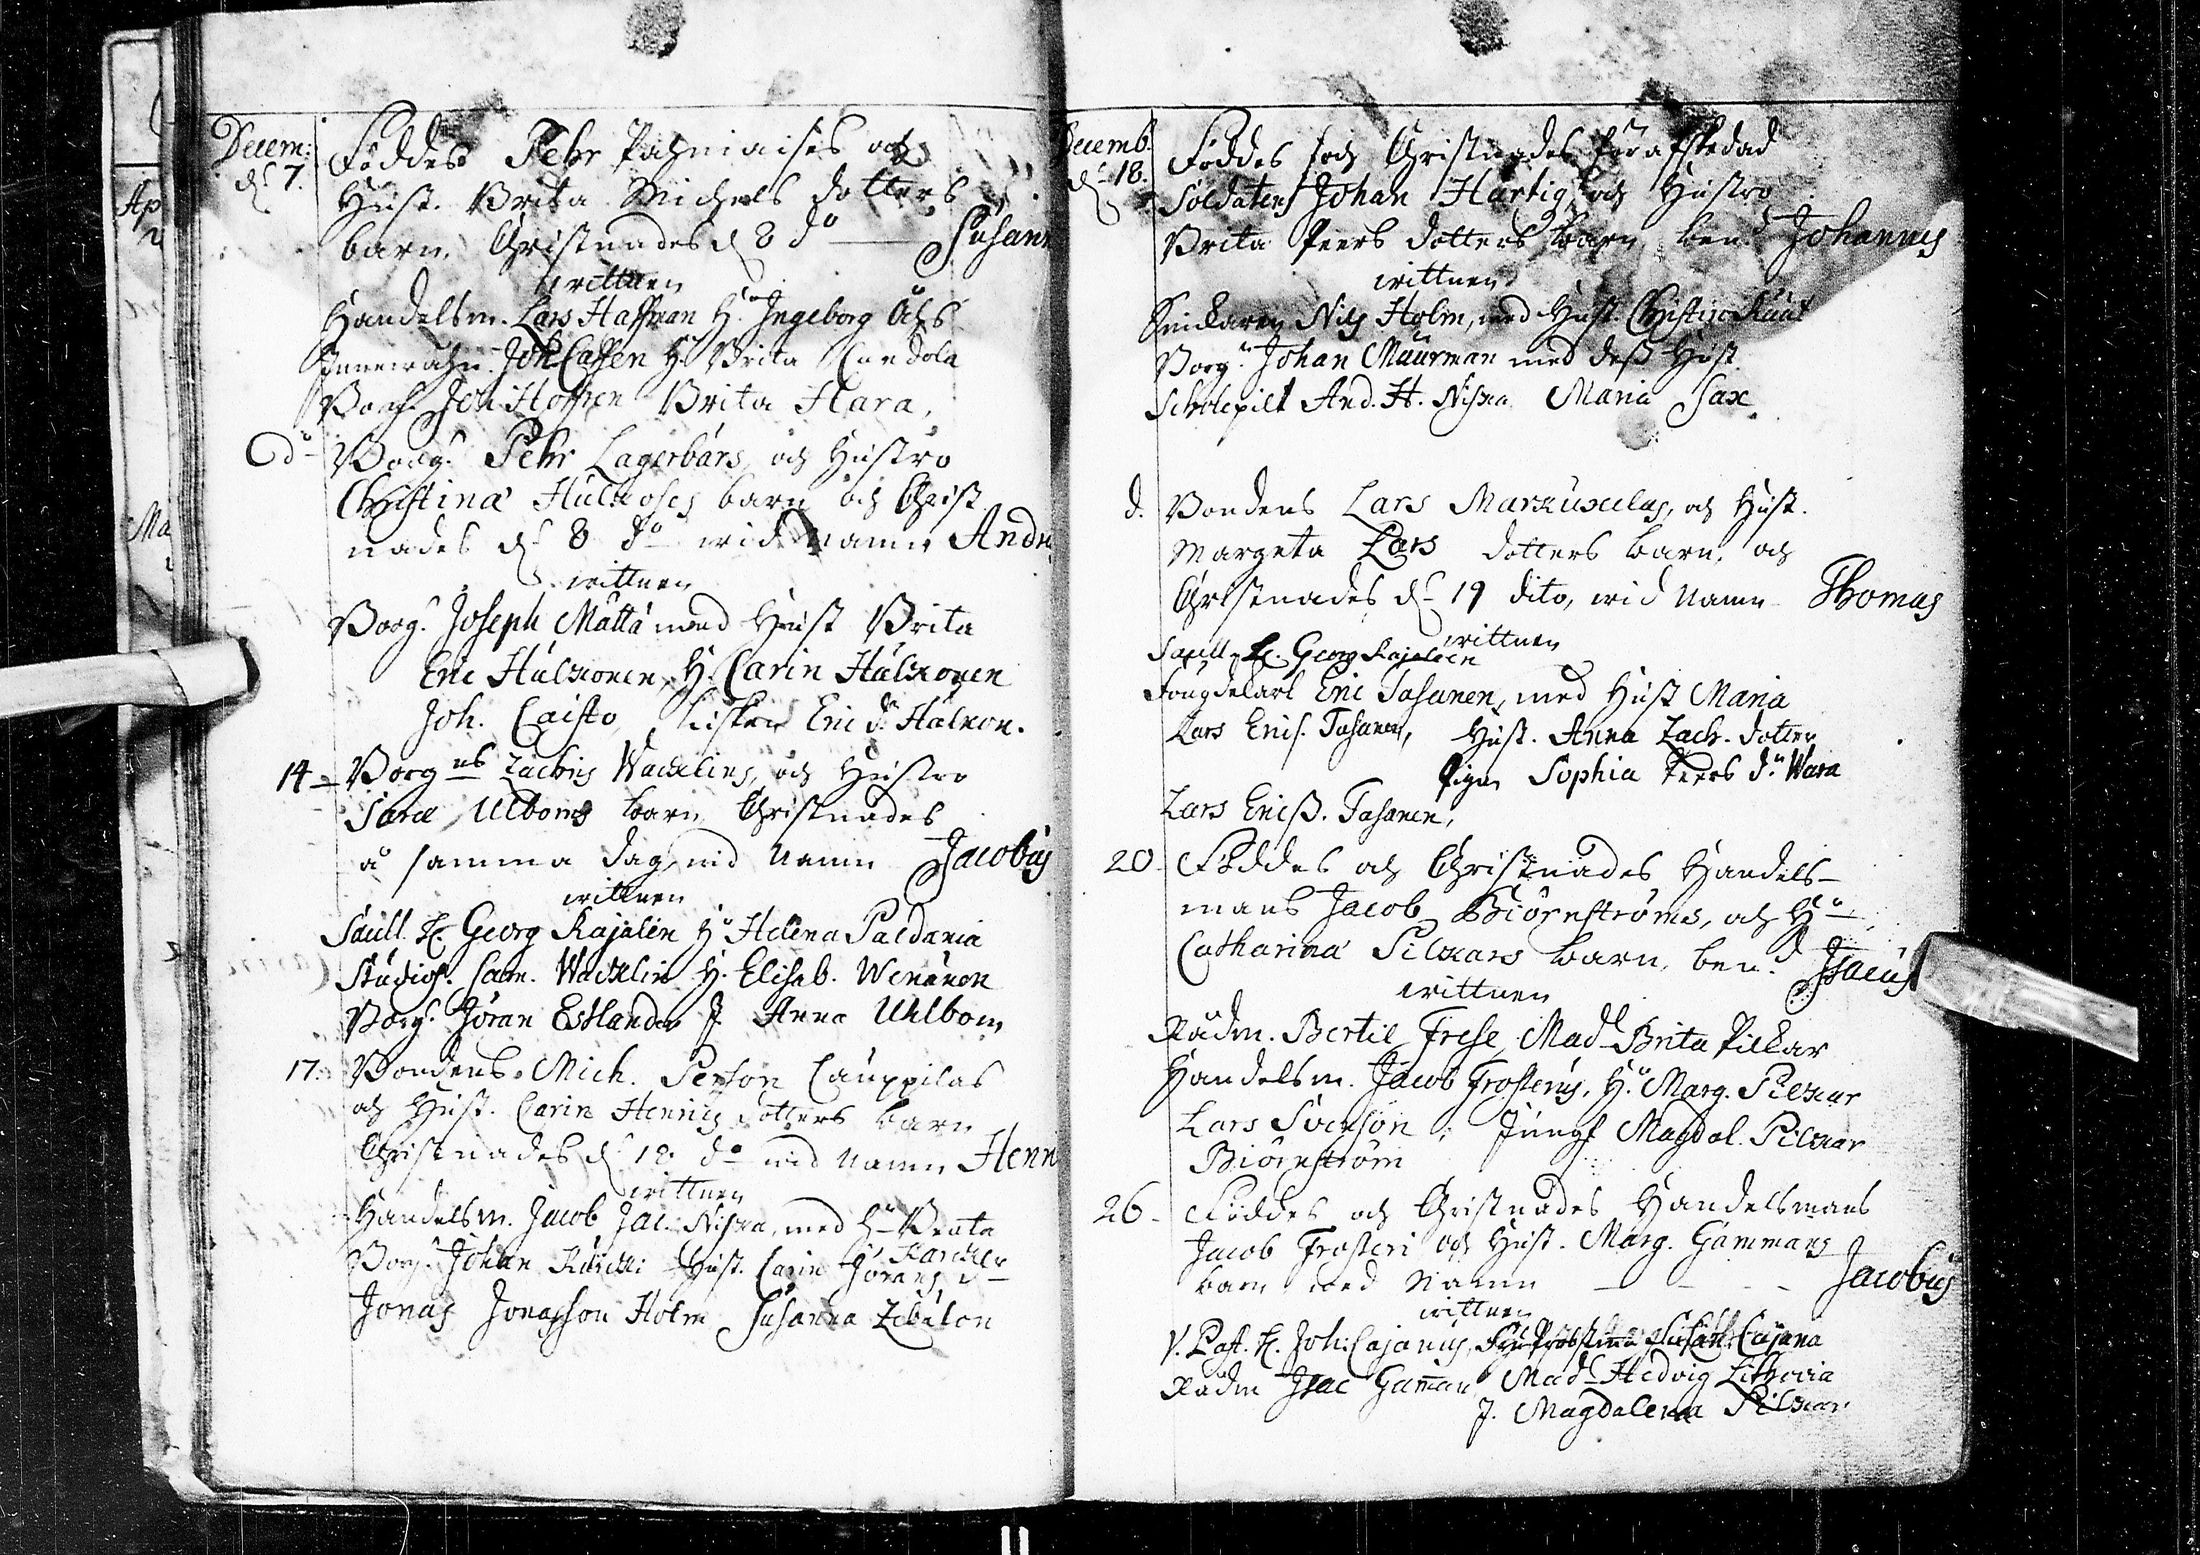 Decem:
d. 7.
Föddes Pehr Pahniaises och
Hust. Brita Michels dotters
barn, Christnades d 8 do Susann
wittnen
Handelsm. Lars Haffman H. Ingeborg Åhs
Joh. Cassen H. Brita
Joh Hoffren Brita Hara,
do Borg. Pehr Lagerbärs och Hustro
Christina Hulkoses barn och Christ
nades d. 8 do wid namn Andre
wittnen
Borg. Joseph Mattá med Hust Brita
Eric Hulkonen, H. Carin Hulkonen
Joh. Caisto, Eric d. Hulkon.
14 Borgns Zachris Wacklins, och Hustro
Sara Ulboms barn Christnades
å samma dag, wid namn Jacobus
wittnen
Sacell. H. Georg Rajalén H Helena Paldania
Studios. Sam. Wacklin H. Elisab. Wenänen
Borg. Jöran Estlander J. Anna Uhlbom
17. Bondens Mich. Persson Cauppilas
och Hust. Carin Henrics dotters barn
Christnades d. 18 do wid namn Henr
wittnen
Handelsm. Jacob Jac. Niska, med H Beata
Borg. Johan Hust. Carin Jörans dr
Jonas Jonasson Holm Susanna Zebulon
Decemb.
d. 18.
Föddes och Christnades för afskedad
Soldatens Johan Hartig, och Hustro
Brita Peers dotters barn, ben.d Johannes
wittnen
Nils Holm, med Hust. Christin
Borg. Johan Muurman med dess Hust.
Scholepilt And. H. Niska Maria Sax
d. Bondens Lars Markuxelas, och Hust.
Margeta Lars dotters barn, och
Christnades d. 19 dito, wid namn Thomas
wittnen
Sacell. H. Georg Rajalén
Eric Tasanen, med Hust Maria
Lars Erics. Tasanen, Hust. Anna Zach. dotter
Pigan Sophia Peers dr Wara
Lars Ericss. Tasanen,
20. Föddes och Christnades Handels-
mans Jacob Biörnströms, och H
Catharina Pilkars barn, ben.d Isacus
wittnen
Rådm. Bertil Frese, Mad. Brita Pilkar
Handelsm. Jacob Frosterus, H. Marg. Pilkar
Lars Svenson Jungf Magdal. Pilkar
Biörnström
26. Föddes och Christnades Handelsmans
Jacob Frosteri och Hust. Marg. Gammans
barn med Namn Jacobus
wittnen
V. Past. H. Joh. Cajanus, Fru Probstinna Cajana
Rådm Isac Gamman Mad. Hedvig Lithovia
J. Magdalena Pilkar